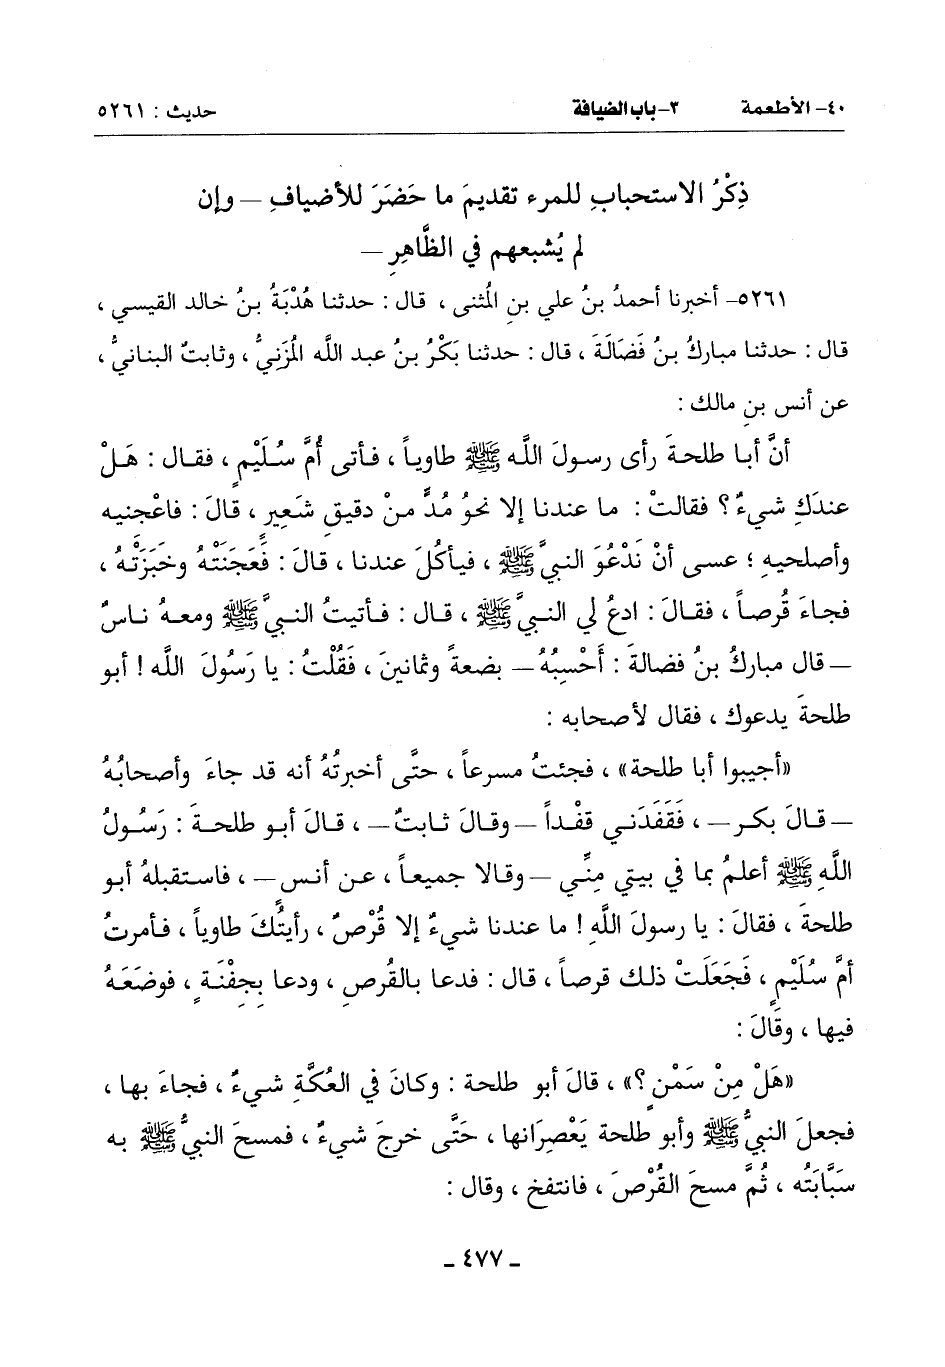 ٤٠- الأطعمة ٣- باب الضيافة حديث : ٥٢٦١
ذِكْرُ الاستحبابِ للمرء تقديمَ ما حَضَرَ للأضيافِ – وإن
لم يُشبعهم في الظَّاهِرِ –
٥٢٦١- أخبرنا أحمدُ بنُ علي بنِ المُثنى ، قال : حدثنا هُدْبَةُ بنُ خالد القيسي ،
قال : حدثنا مباركُ بنُ فَضَالَةَ ، قال : حدثنا بَكْرُ بنُ عبد اللَّه المُزَنِيُّ ، وثابتٌ البنانيُّ ،
عن أنس بنِ مالك :
أنَّ أبا طلحةَ رأى رسولَ اللَّه ﷺ طاوياً ، فأتى أُمَّ سُلَيْمٍ ، فقال : هَلْ
عندَكِ شيءٌ ؟ فقالتْ : ما عندنا إلا نحوُ مُدٍّ منْ دقيقِ شَعِيرٍ ، قالَ : فاعْجِنيه
وأصلحيهِ ؛ عسى أنْ نَدْعُوَ النبيَّ ﷺ ، فيأكُلَ عندنا ، قالَ : فَعَجَنَتْهُ وخَبَزَتْهُ ،
فجاءَ قُرصاً ، فقالَ : ادعُ لي النبيَّ ﷺ ، قال : فأتيتُ النبيَّ ﷺ ومعهُ ناسٌ
– قال مباركُ بنُ فضالةَ : أَحْسِبُهُ – بضعةً وثمانينَ ، فَقُلْتُ : يا رَسُولَ اللَّه ! أبو
طلحةَ يدعوك ، فقال لأصحابه :
«أجيبوا أبا طلحة» ، فجئتُ مسرعاً ، حتَّى أخبرتُهُ أنه قد جاءَ وأصحابُهُ
– قالَ بكر – ، فَقَفَدَني قفْداً – وقالَ ثابتٌ – ، قالَ أبو طلحةَ : رَسُولُ
اللَّهِ ﷺ أعلمُ بما في بيتي مِنِّي – وقالا جميعاً ، عن أنسٍ – ، فاستقبلهُ أبو
طلحةَ ، فقالَ : يا رسولَ اللَّهِ ! ما عندنا شيءٌ إلا قُرْصٌ ، رأيتُكَ طاوياً ، فأمرتُ
أمَّ سُلَيْمٍ ، فَجَعَلَتْ ذلك قرصاً ، قال : فدعا بالقُرصِ ، ودعا بِجِفْنَةٍ ، فوضَعَهُ
فيها ، وقَالَ :
«هَلْ مِنْ سَمْنٍ ؟» ، قالَ أبو طلحة : وكانَ في العُكَّةِ شيءٌ ، فجاءَ بها ،
فجعلَ النبيُّ ﷺ وأبو طلحة يَعْصِرَانها ، حَتَّى خرجَ شيءٌ ، فمسحَ النبيُّ ﷺ به
سبَّابَتُه ، ثُمَّ مسحَ القُرْصَ ، فانتفخ ، وقال :
ـ ٤٧٧ ـ